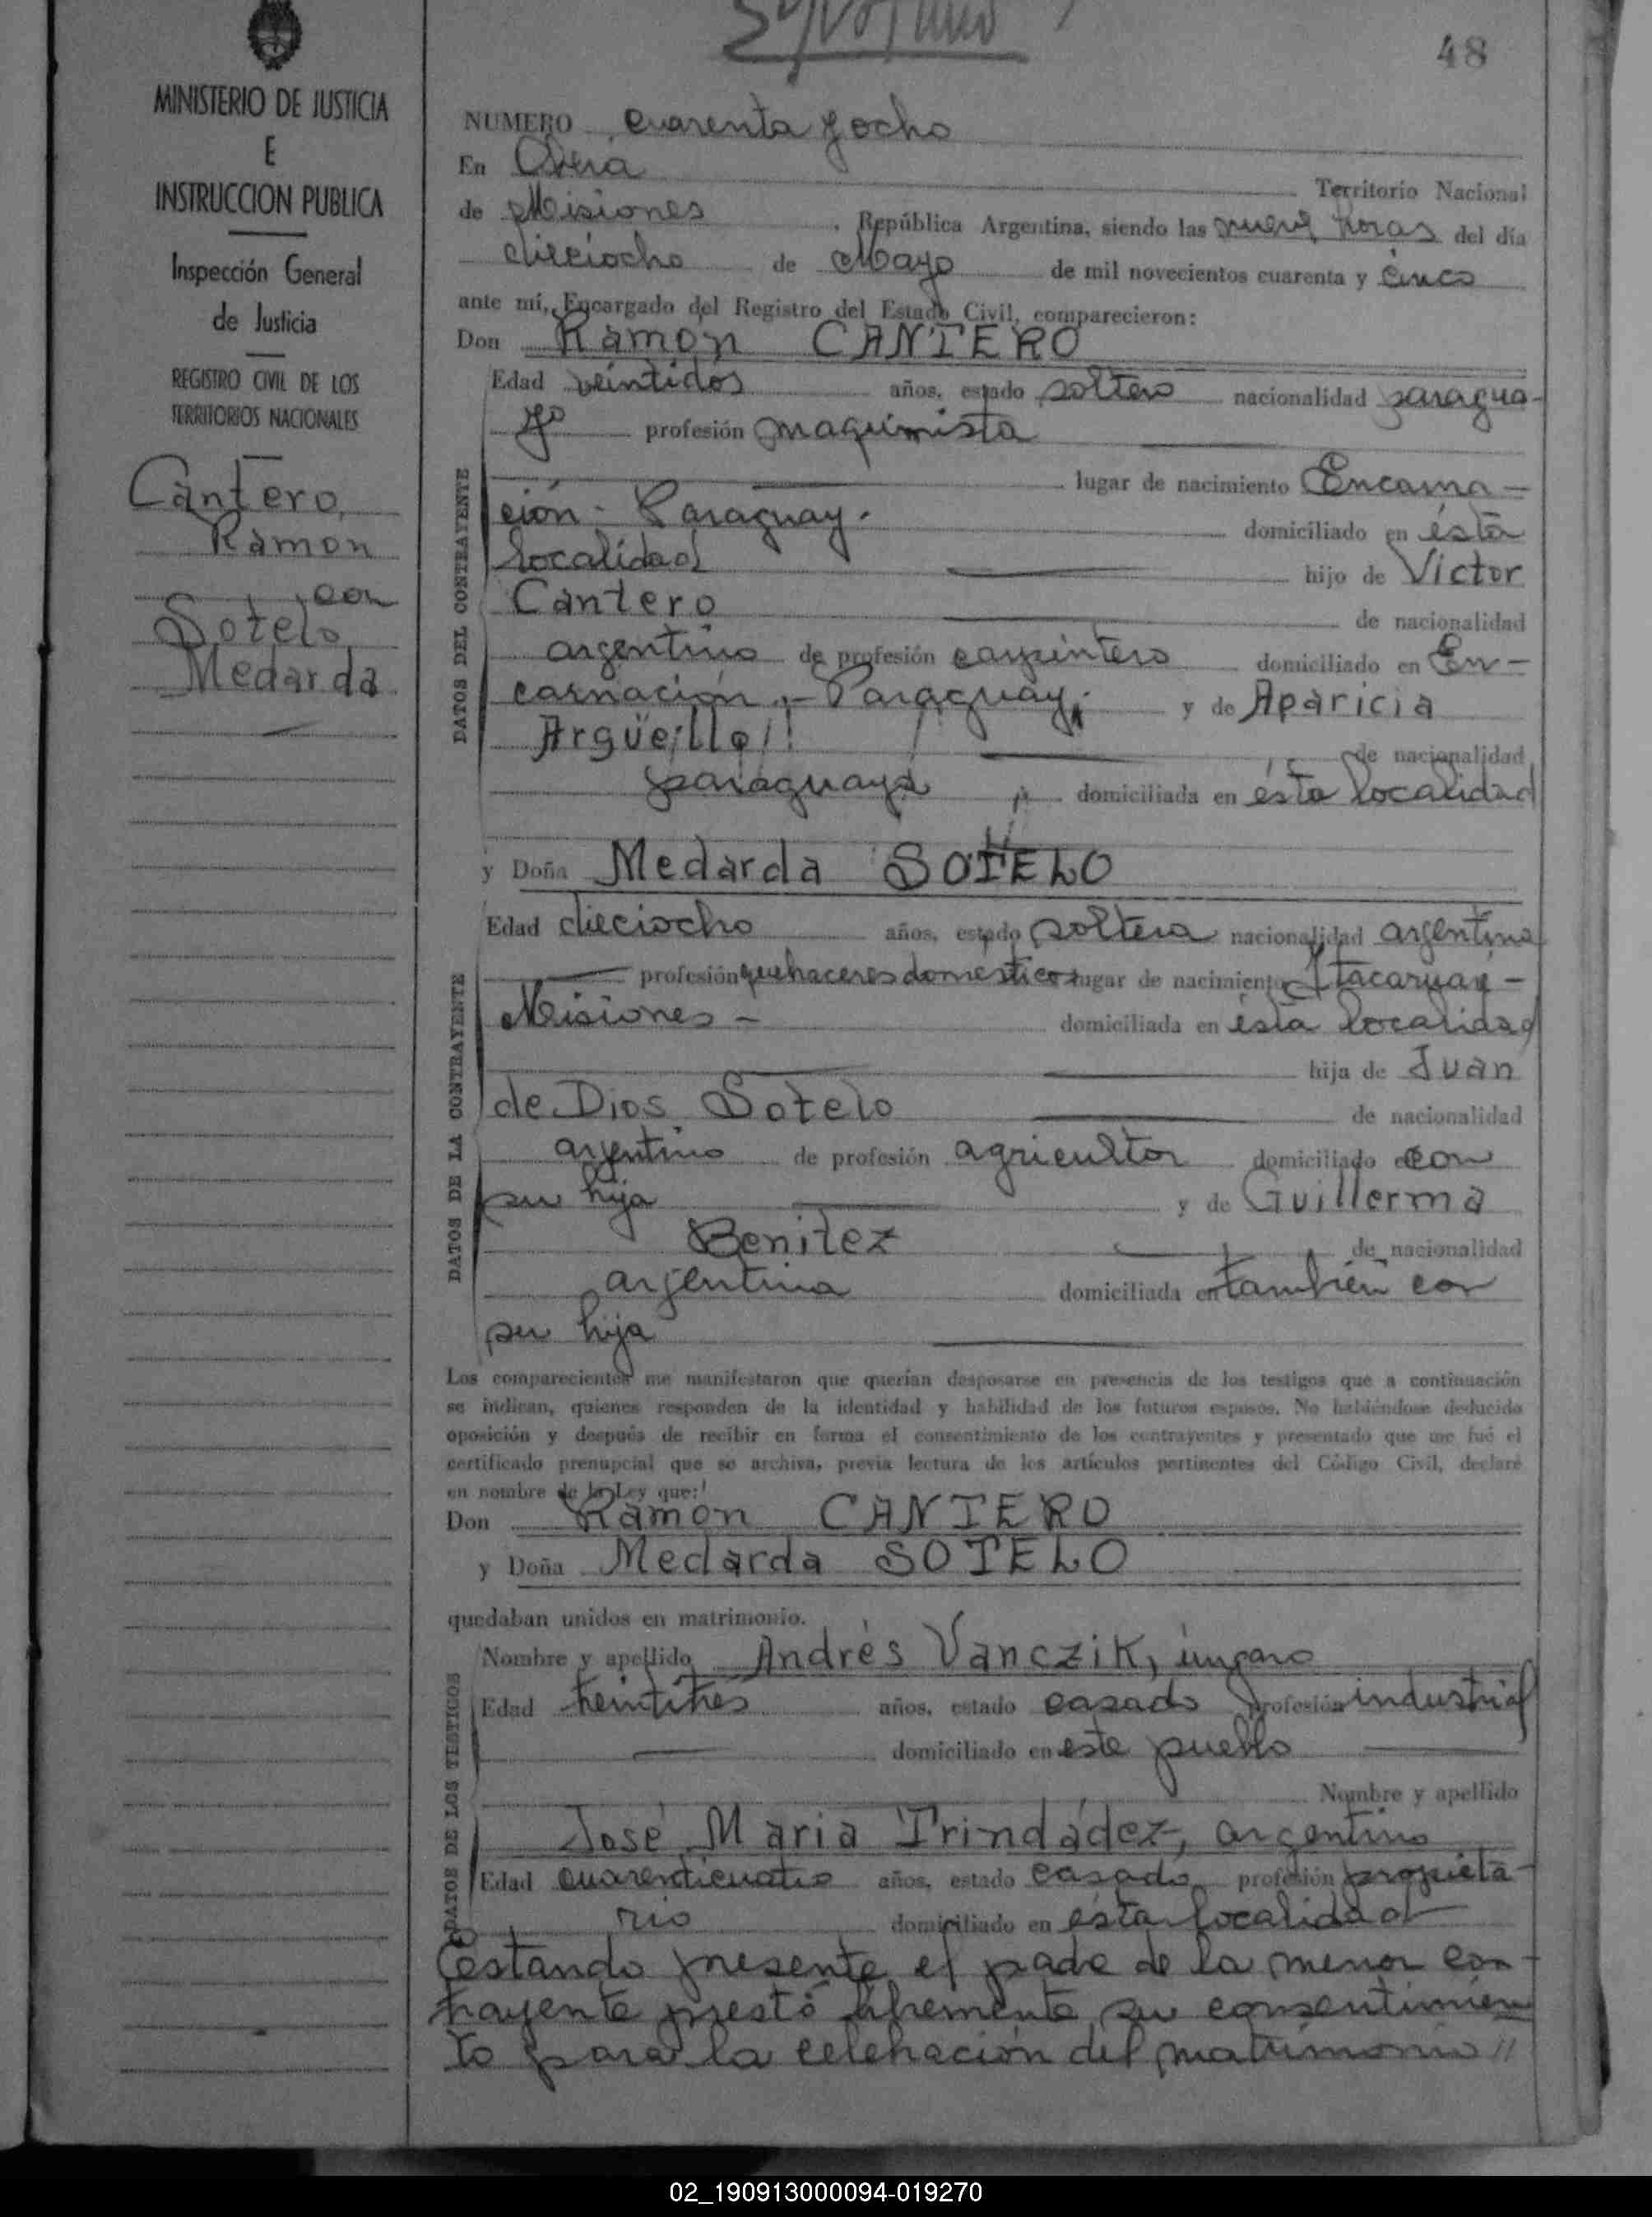 48
MINISTERIO DE JUSTICIA
E
INSTRUCCION PUBLICA
Inspección General
de Justicia
REGISTRO CIVIL DE LOS
TERRITORIOS NACIONALES
Cantero,
Ramon
con
Sotelo,
Medarda
NUMERO cuarenta y ocho
En Oberá Territorio Nacional
de Misiones, República Argentina, siendo las nueve horas del día
dieciocho de Mayo de mil novecientos cuarenta y cinco
ante mí, Encargado del Registro del Estado Civil, comparecieron:
Don Ramon CANTERO
DATOS DEL CONTRAYENTE
Edad veintidos años, estado soltero nacionalidad paragua-
yo profesión maquinista
lugar de nacimiento Encarna-
ción - Paraguay. domiciliado en ésta
localidad hijo de Victor
Cantero de nacionalidad
argentino de profesión carpintero domiciliado en En-
carnación - Paraguay. y de Aparicia
Argüello de nacionalidad
paraguaya domiciliada en ésta localidad
y Doña Medarda SOTELO
DATOS DE LA CONTRAYENTE
Edad dieciocho años, estado soltera nacionalidad argentina
profesión quehaceres domésticos lugar de nacimiento Itacaruaré-
Misiones - domiciliada en ésta localidad
hija de Juan
de Dios Sotelo de nacionalidad
argentino de profesión agricultor domiciliado con
su hija y de Guillerma
Benitez de nacionalidad
argentina domiciliada en también con
su hija
Los comparecientes me manifestaron que querían desposarse en presencia de los testigos que a continuación
se indican, quienes responden de la identidad y habilidad de los futuros esposos. No habiéndose deducido
oposición y después de recibir en forma el consentimiento de los contrayentes y presentado que me fué el
certificado prenupcial que se archiva, previa lectura de los artículos pertinentes del Código Civil, declaré
en nombre de la Ley que:
Don Ramon CANTERO
y Doña Medarda SOTELO
quedaban unidos en matrimonio.
DATOS DE LOS TESTIGOS
Nombre y apellido Andrés Vanczik, úngaro
Edad treintitres años, estado casado profesión industrial
domiciliado en este pueblo
Nombre y apellido
José Maria Trindádez, argentino
Edad cuarenticuatro años, estado casado profesión propieta-
rio domiciliado en ésta localidad
Estando presente el padre de la menor con-
trayente prestó libremente su consentimien
to para la celebración del matrimonio //
02_190913000094-019270